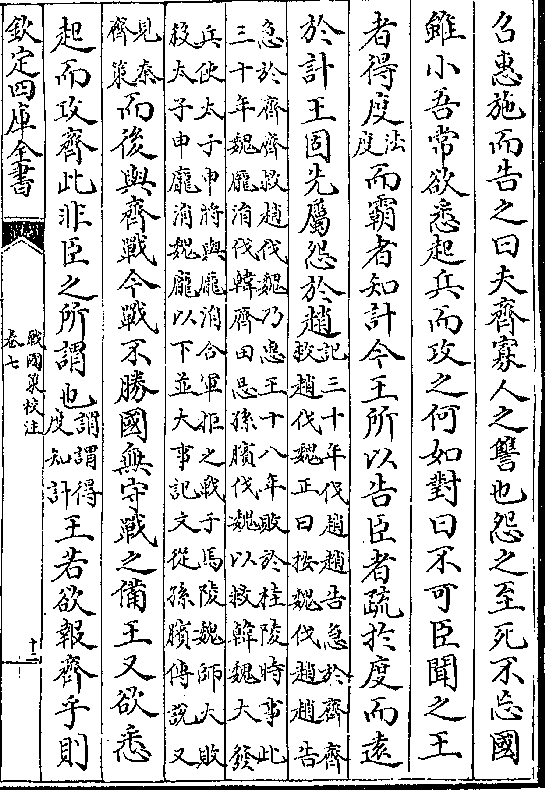 召惠施而告之曰夫齊寡人之讐也怨之至死不忘國
雖小吾常欲悉起兵而攻之何如對曰不可臣聞之王
者得度法度而霸者知計今王所以告臣者疏於度而遠
於計王固先屬怨於趙記三十年伐趙趙告急於齊齊救趙伐魏正曰按魏伐趙趙告
急於齊齊救趙伐魏乃惠王十八年敗於桂陵時事此
三十年魏龐涓伐韓齊田忌孫臏伐魏以救韓魏大發
兵使太子申將與龐涓合軍拒之戰于馬陵魏師大敗
殺太子申龐涓魏龐以下並大事記文從孫臏傳說又
見秦齊策而後與齊戰今戰不勝國無守戰之備王又欲悉
起而攻齊此非臣之所謂也謂謂得度知計王若欲報齊乎則
欽定四庫全書
戰國策校注
卷七
十二